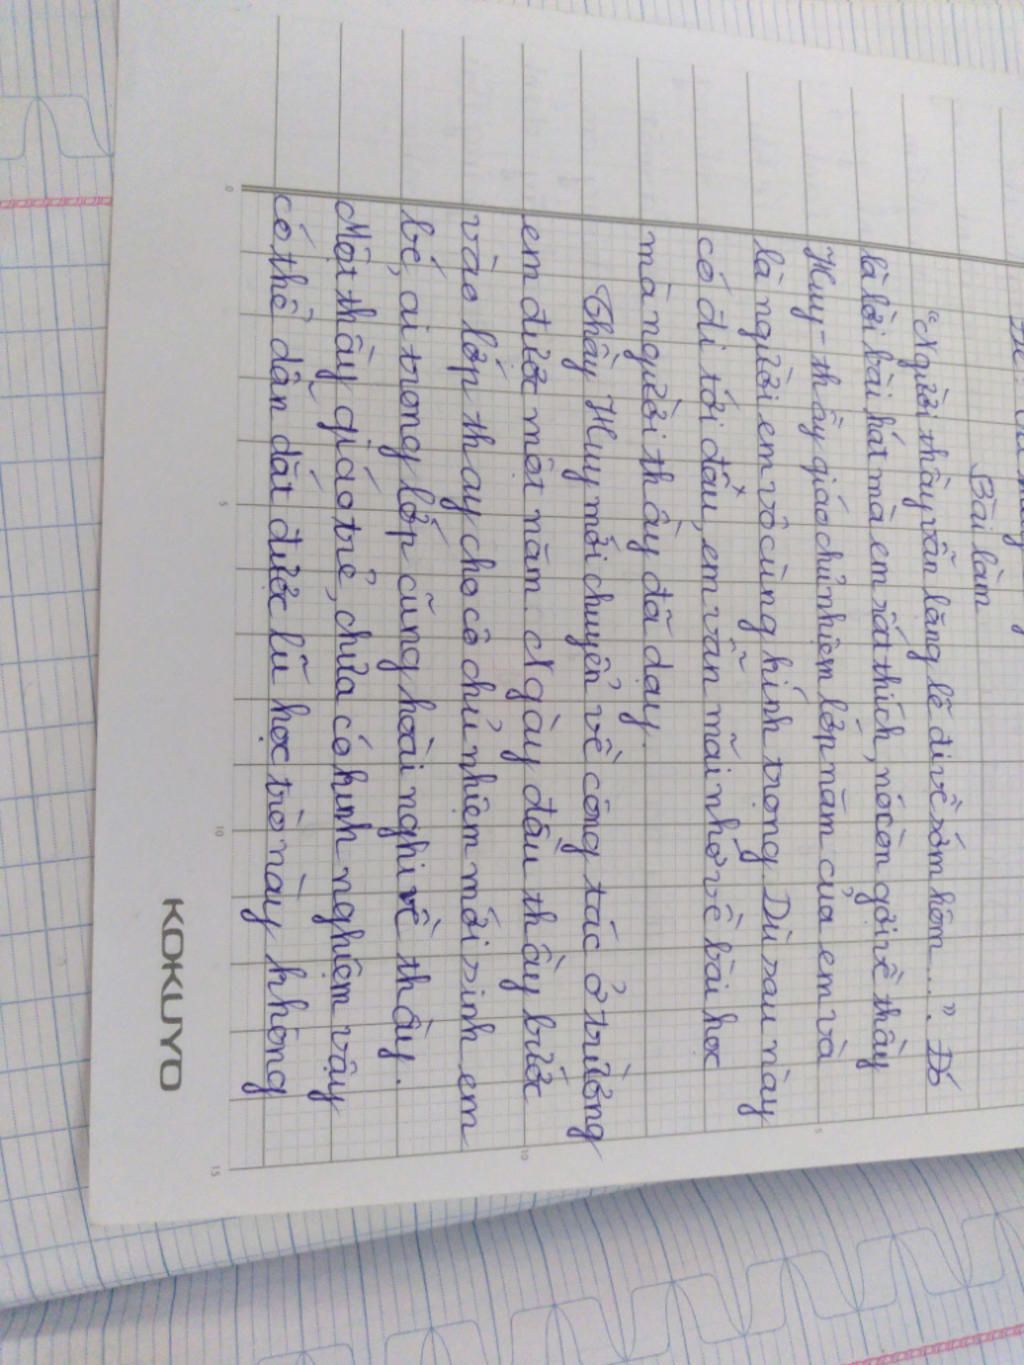 Bài làm
"Người thầy vẫn lặng lẽ đi về sớm hôm...". Đó
là lời bài hát mà em rất thích, nó còn gợi về thầy
Huy - thầy giáo chủ nhiệm lớp năm của em và
là người em vô cùng kính trọng. Dù sau này
có đi tới đâu, em vẫn mãi nhớ về bài học
mà người thầy đã dạy.
Thầy Huy mới chuyển về công tác ở trường
em được một năm. Ngày đầu thầy bước
vào lớp thay cho cô chủ nhiệm mới sinh em
bé, ai trong lớp cũng hoài nghi về thầy.
Một thầy giáo trẻ, chưa có kinh nghiệm vậy
có thể dẫn dắt được lũ học trò này không
KOKUYO
0
5
10
15
5
10